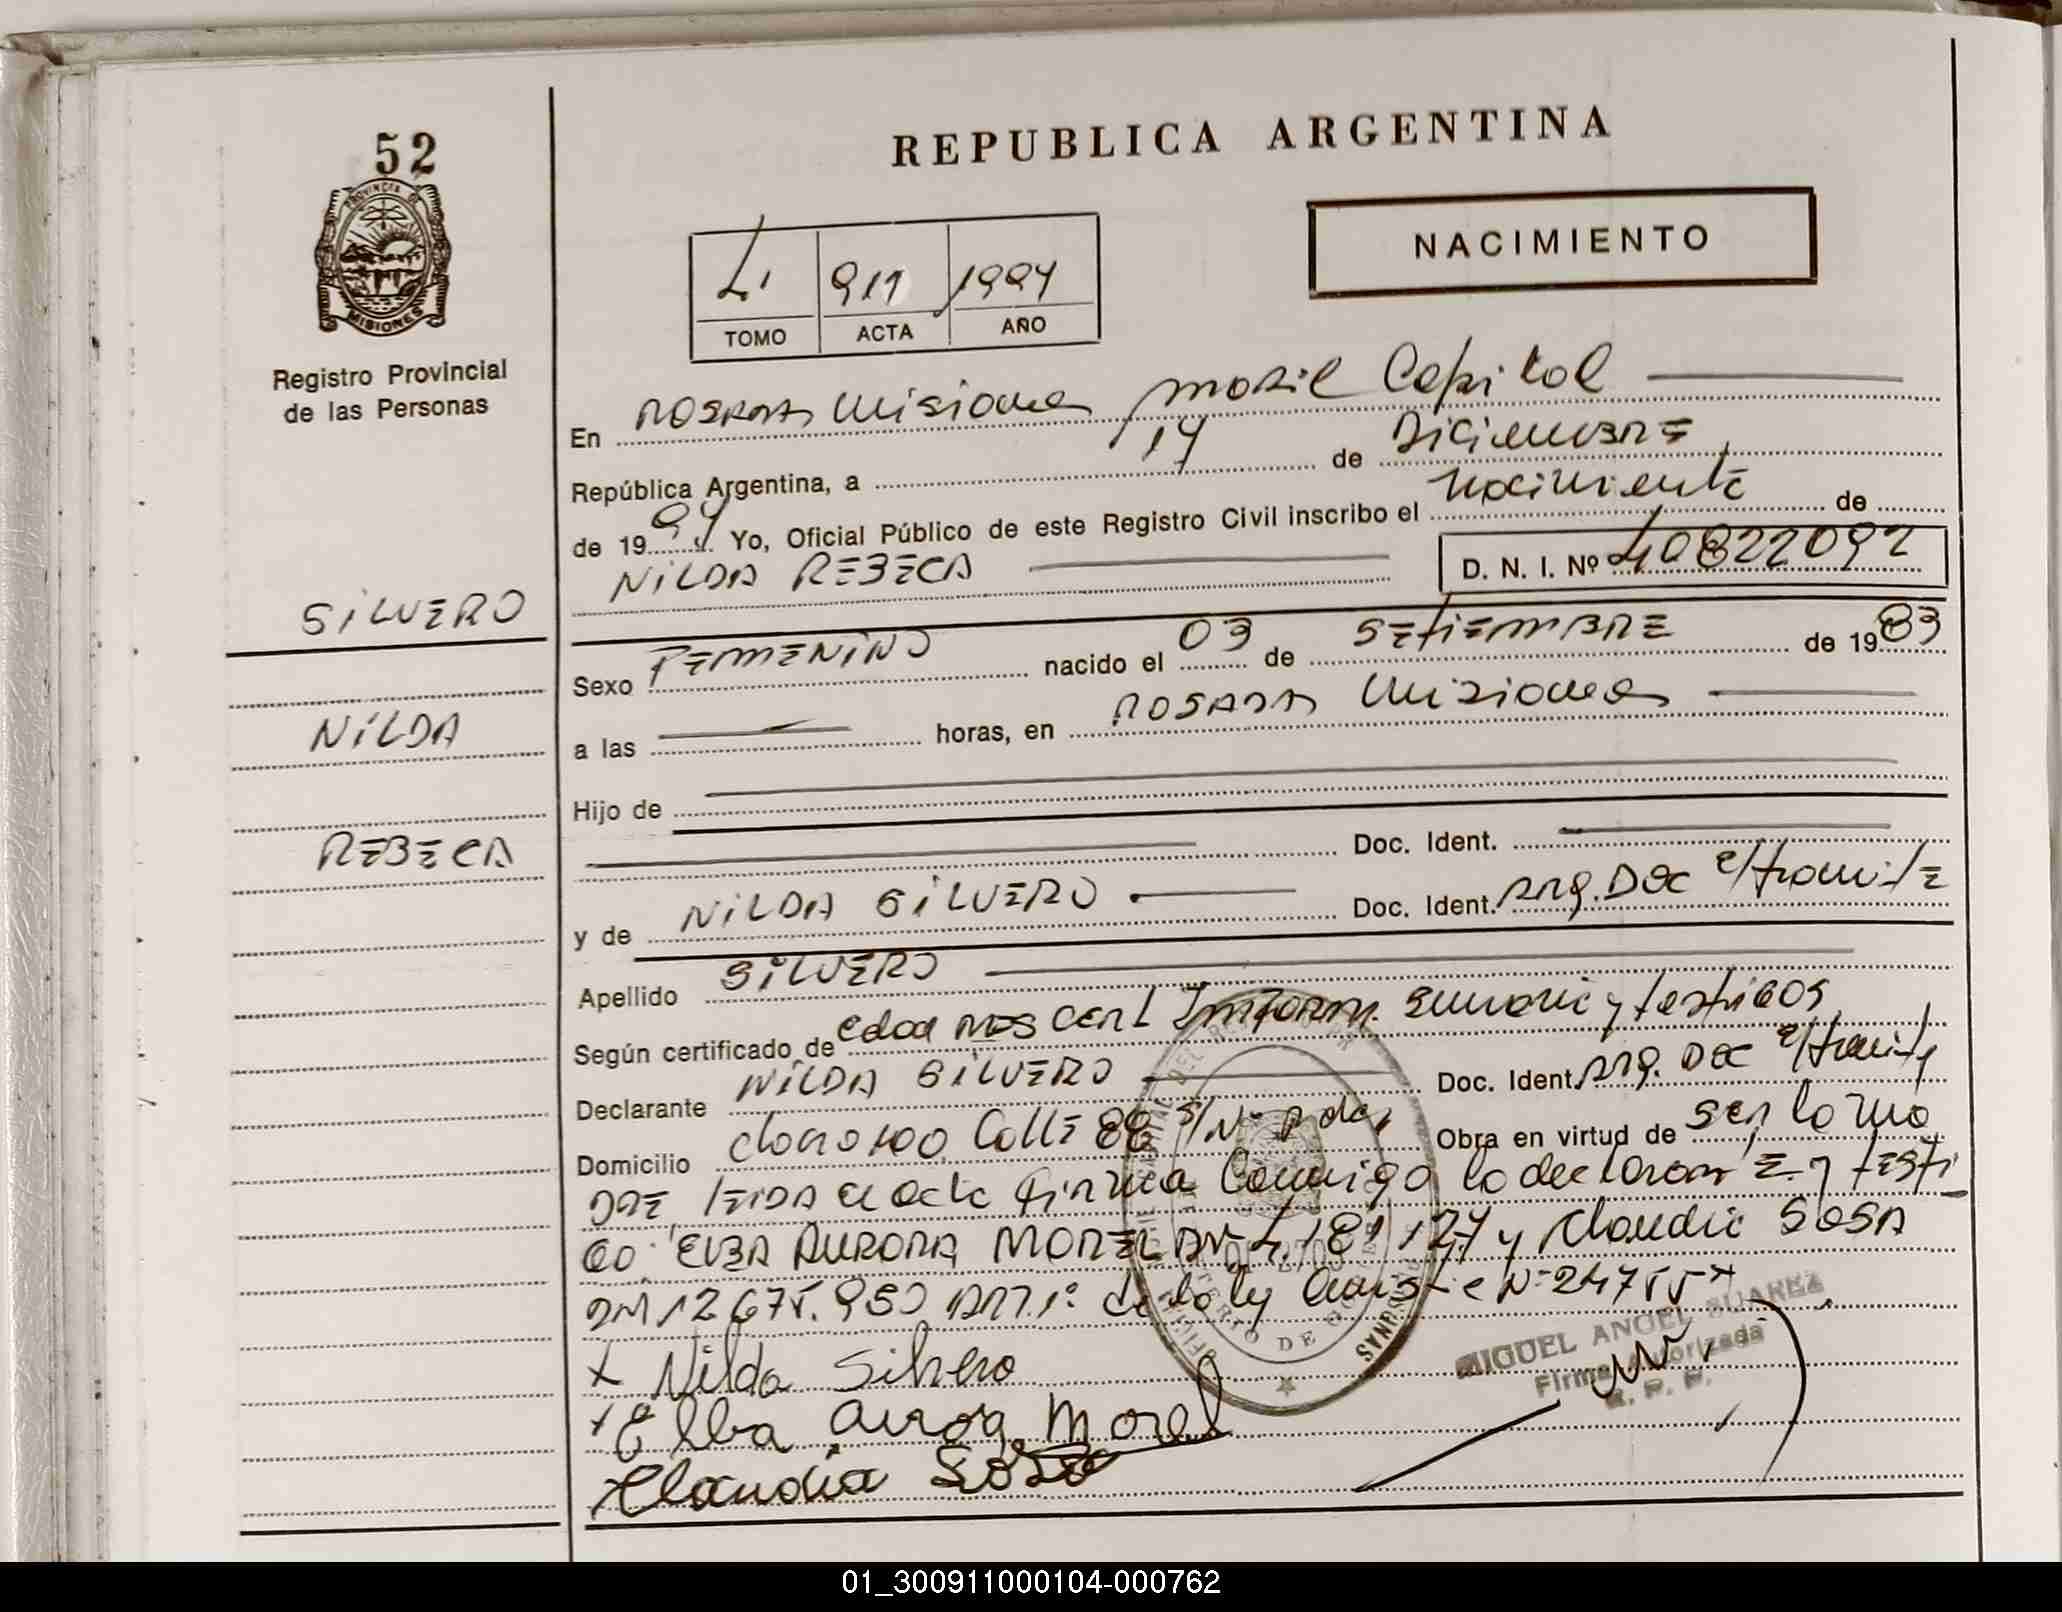 52
PROVINCIA DE
MISIONES
Registro Provincial
de las Personas
REPUBLICA ARGENTINA
NACIMIENTO
911 1994
TOMO ACTA AÑO
En POSADAS Misiones movil Capital
República Argentina, a 14 de Diciembre
de 1994 Yo, Oficial Público de este Registro Civil inscribo el Nacimiento de
NILDA REBECA D. N. I. Nº 40822092
SILVERO
Sexo FEMENINO nacido el 03 de SETIEMBRE de 1983
NILDA
a las horas, en POSADAS Misiones
Hijo de
REBECA
Doc. Ident.
y de NILDA SILVERO Doc. Ident. Arg. Doc e/tramite
Apellido SILVERO
Según certificado de edad MDS Inform. Sumaria y testigos
Declarante NILDA SILVERO Doc. Ident. Arg. Doc e/tramite
Domicilio Chacra 100 Calle 88 S/Nº Pdas Obra en virtud de ser la ma
DRE leida el acta firma conmigo la declarante y testi
go: ELBA AURORA MOREL y Claudia SOSA
12675.950 Art. 1º de la ley
MIGUEL ANGEL SUAREZ
Firma Autorizada
R. P. P.
x Nilda Silvero
x Elba Morel
x Claudia Sosa
01_300911000104-000762